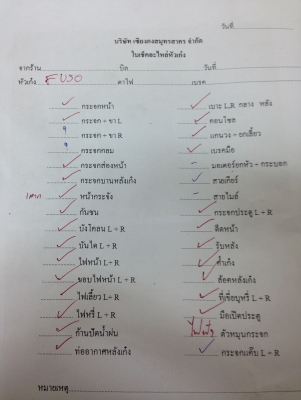 วันที่
บริษัท เชียงกงสมุทรสาคร จำกัด
ใบเช็คอะไหล่หัวเก๋ง
จากร้าน บิล วันที่
หัวเก๋ง FUSO คาไฟ เบรค
กระจกหน้า เบาะ L.R กลาง หลัง
กระจก + ขา L คอนโซล
กระจก + ขา R แกนวง + ยกเลี้ยว
กระจกกลม เบรคมือ
กระจกส่องหน้า มอเตอร์ยกหัว + กระบอก
กระจกบานหลังเก๋ง สายเกียร์
หน้ากระจัง สายไมล์
กันชน กระจกประตู L + R
บังโคลน L + R ลิดหน้า
บันได L + R รับหลัง
ไฟหน้า L + R ค้ำเก๋ง
ขอบไฟหน้า L + R ล้อคหลังเก๋ง
ไฟเลี้ยว L + R ที่เขี่ยบุหรี่ L + R
ไฟหรี่ L + R มือเปิดประตู
ก้านปัดน้ำฝน ตัวหมุนกระจก
ท่ออากาศหลังเก๋ง กระจกแค๊บ L + R
หมายเหตุ